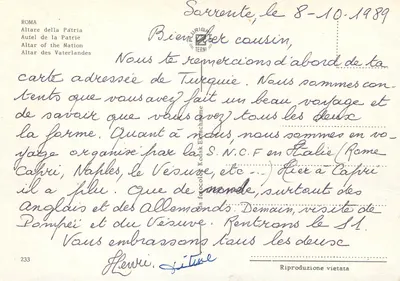 Sorrente, le 8-10.1989
ROMA
Altare della Patria
Autel de la Patrie
Altar of the Nation
Altar des Vaterlandes
Bien cher cousin,
Nous te remercions d'abord de ta
carte adressée de Turquie. Nous sommes con-
tents que vous avez fait un beau voyage et
de savoir que vous avez tous les deux
la forme. Quant à nous, nous sommes en vo-
yage organisé par la S.N.C.F en Italie (Rome
Capri, Naples, le Vésuve, etc...) Hier à Capri
il a plu. Que de monde, surtout des
Anglais et des Allemands. Demain, visite de
Pompéi et du Vésuve. Rentrons le 11.
Vous embrassons tous les deux
Henri.
233
Riproduzione vietata